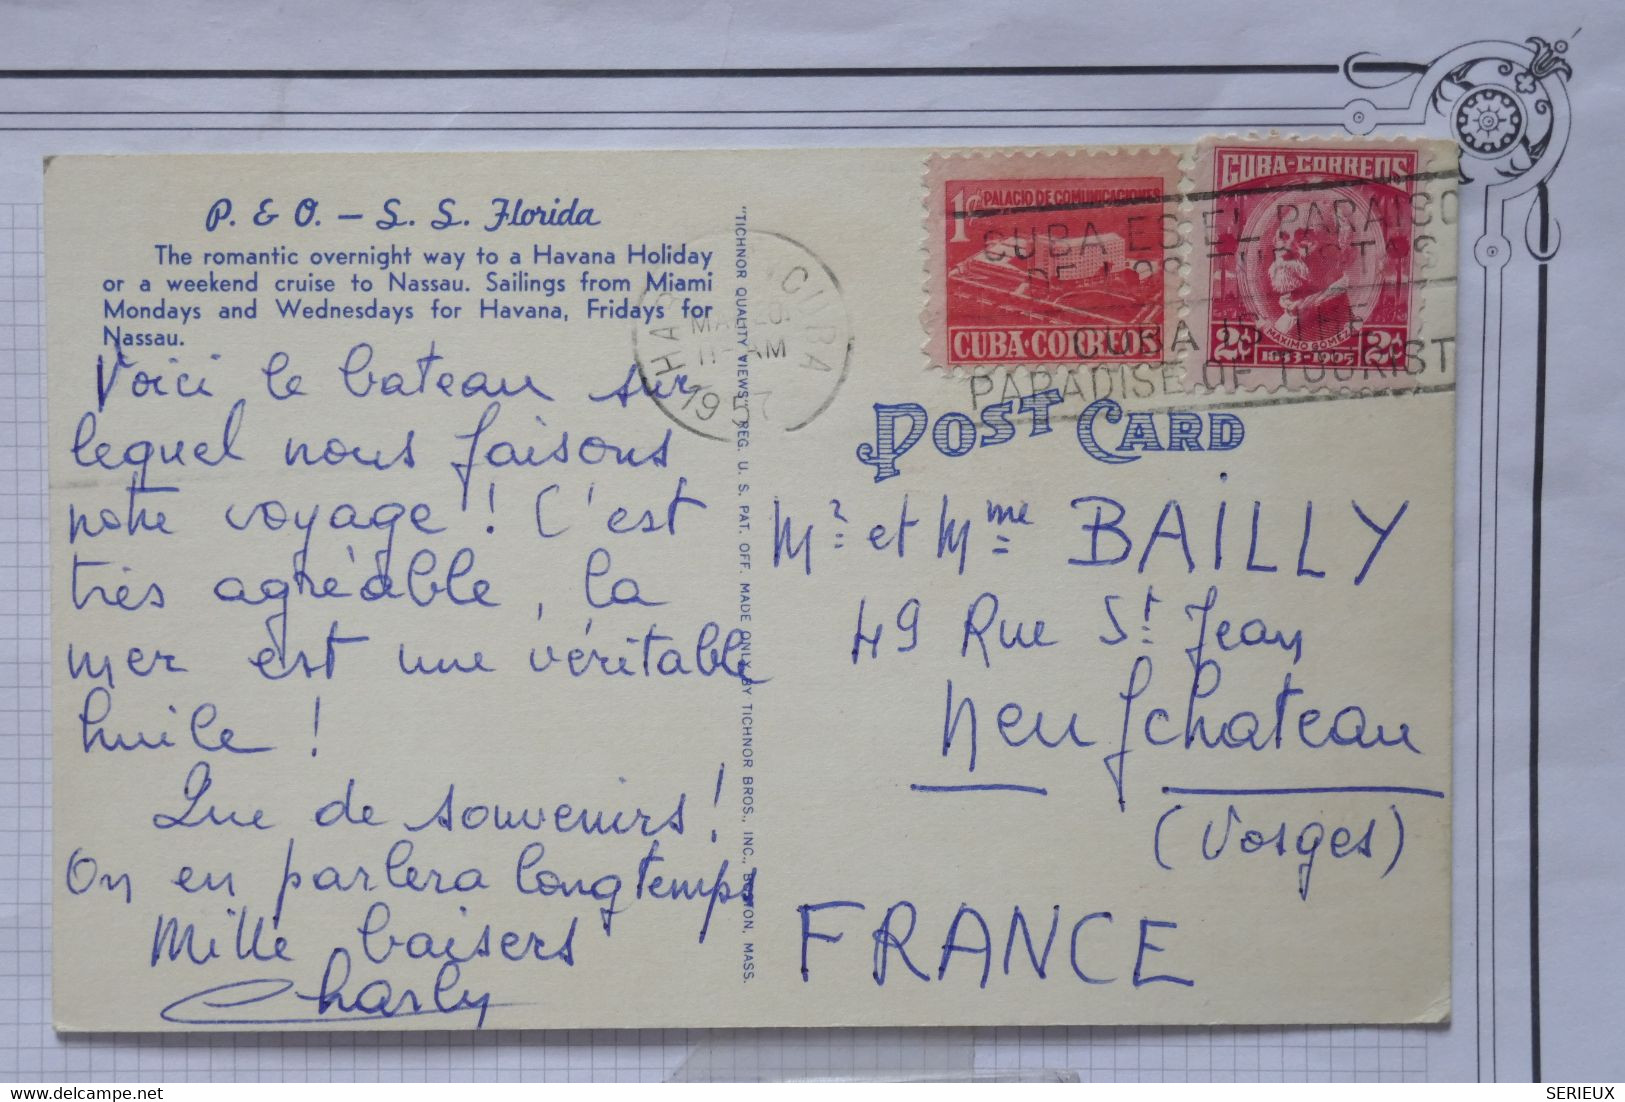 P. & O. — S. S. Florida
The romantic overnight way to a Havana Holiday
or a weekend cruise to Nassau. Sailings from Miami
Mondays and Wednesdays for Havana, Fridays for
Nassau.
Voici le bateau sur
lequel nous faisons
notre voyage ! C'est
très agréable, la
mer est une véritable
huile !
Que de souvenirs !
On en parlera longtemps
Mille baisers
Charly
"TICHNOR QUALITY VIEWS," REG. U. S. PAT. OFF. MADE ONLY BY TICHNOR BROS., INC., BOSTON, MASS.
CUBA
11-AM
1957
1¢ PALACIO DE COMUNICACIONES
CUBA·CORREOS
CUBA-CORREOS
MAXIMO GOMEZ
2¢ 2¢
CUBA ES EL PARAISO
DE LOS TURISTAS
CUBA IS THE
PARADISE OF TOURIST
POST CARD
Mr et Mme BAILLY
49 Rue St Jean
Neufchateau
(Vosges)
FRANCE
SERIEUX